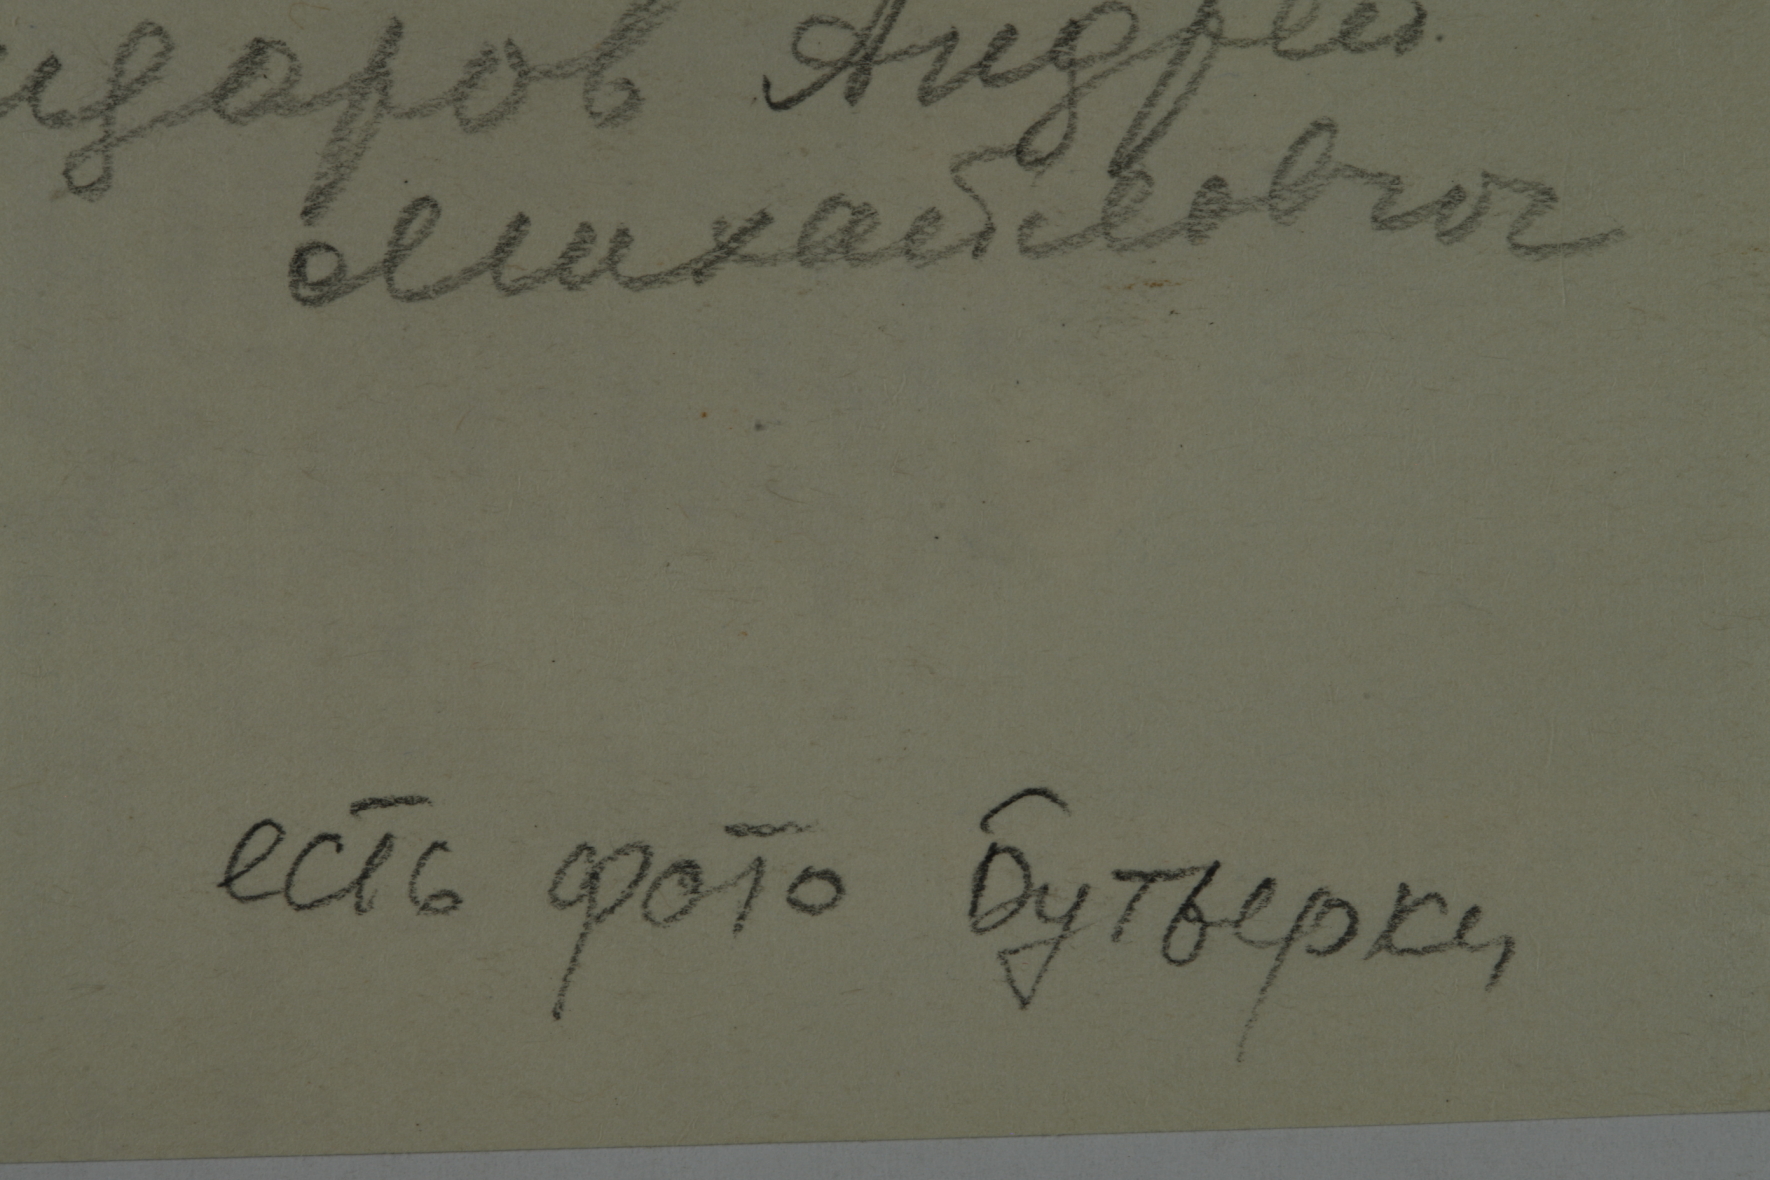 Андрей
Михайлович
есть фото Бутырки